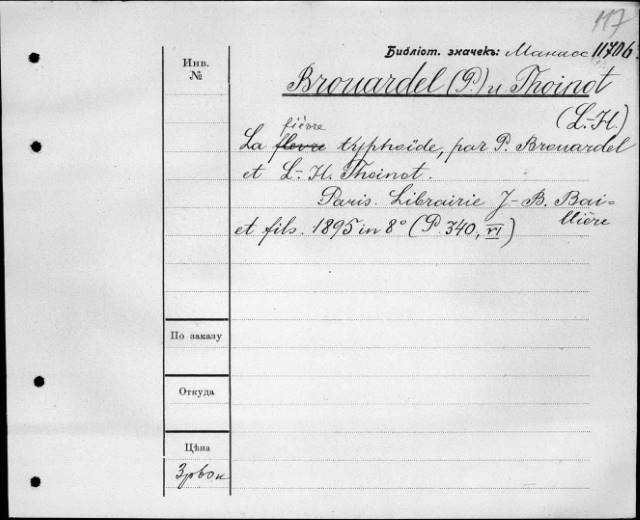 117
Библіот. значекъ: Маннсс 11706
Инв.
№
Brouardel (P.) и Thoinot
(L.-H.)
fièvre
La flevre typhoïde, par P. Brouardel
et L.-H. Thoinot.
Paris. Librairie J.-B. Bai-
llière
et fils. 1895 in 8° (P. 340, VI)
По заказу
Откуда
Цѣна